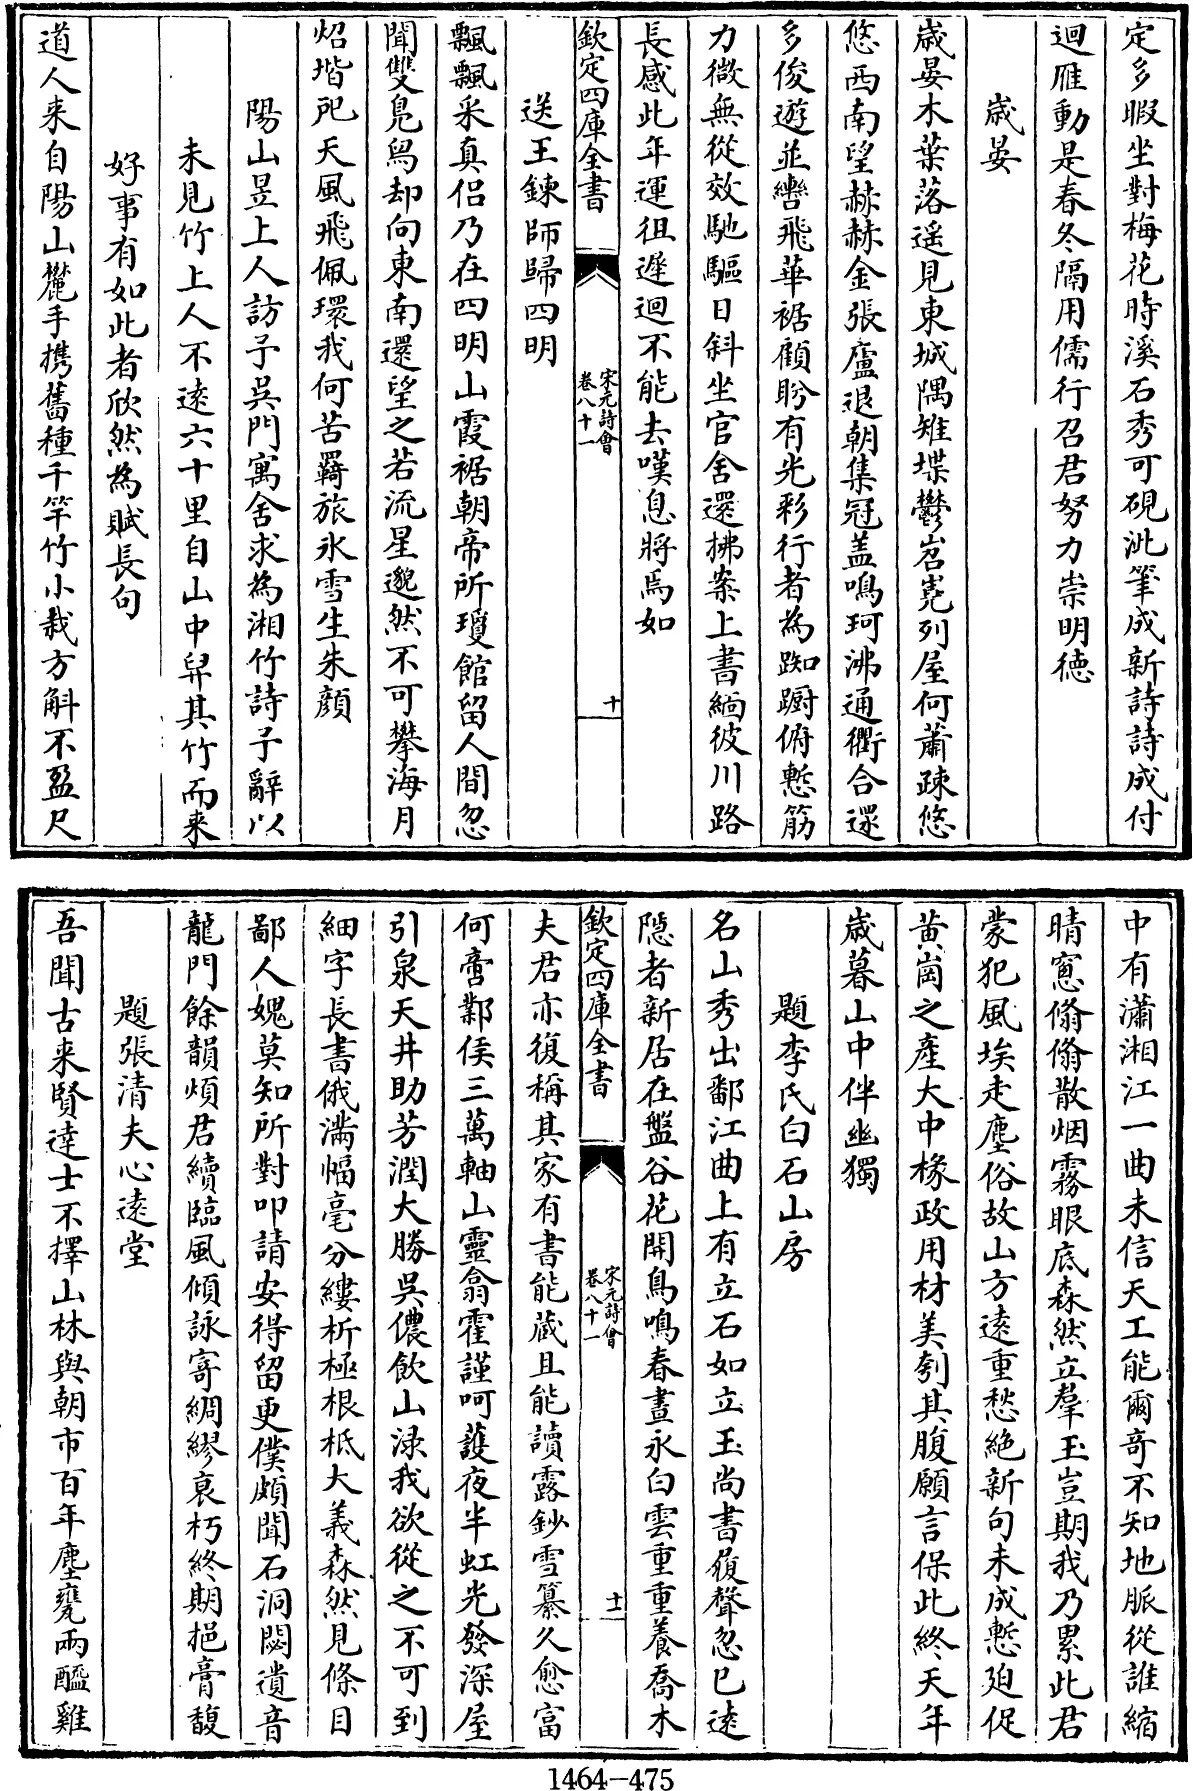 定多暇坐對梅花時溪石秀可硯泚筆成新詩詩成付
迴雁動是春冬隔用儒行召君努力崇明徳
歳晏
歳晏木葉落遥見東城隅雉堞鬱岧嶤列屋何蕭疎悠
悠西南望赫赫金張廬退朝集冠盖鳴珂沸通衢合還
多俊遊並轡飛華裾顧盼有光彩行者為踟蹰俯慙筋
力微無從效馳驅日斜坐官舍還拂案上書緬彼川路
長感此年運徂遲迴不能去嘆息將焉如
欽定四庫全書
宋元詩會
卷八十一
十
送王鍊師歸四明
飄飄采真侣乃在四明山霞裾朝帝所瓊館留人間忽
聞雙鳧舄却向東南還望之若流星邈然不可攀海月
炤堦戺天風飛佩環我何苦羇旅氷雪生朱顔
陽山昱上人訪予吳門寓舍求為湘竹詩予辭以
未見竹上人不逺六十里自山中舁其竹而来
好事有如此者欣然為賦長句
道人来自陽山麓手携舊種千竿竹小栽方斛不盈尺
中有瀟湘江一曲未信天工能爾竒不知地脈從誰縮
晴窻翛翛散烟霧眼底森然立羣玉豈期我乃累此君
蒙犯風埃走塵俗故山方逺重愁絶新句未成慙廹促
黄崗之產大中椽政用材美刳其腹願言保此終天年
歳暮山中伴幽獨
題李氏白石山房
名山秀出鄱江曲上有立石如立玉尚書履聲忽已逺
隱者新居在盤谷花開鳥鳴春晝永白雲重重養喬木
欽定四庫全書
宋元詩會
卷八十一
十一
夫君亦復稱其家有書能蔵且能讀露鈔雪纂久愈富
何啻鄴侯三萬軸山靈翕霍謹呵䕶夜半虹光發深屋
引泉天井助芳潤大勝吳儂飲山渌我欲從之不可到
細字長書俄滿幅毫分縷析極根柢大義森然見條目
鄙人媿莫知所對叩請安得留更僕頗聞石洞閟遺音
龍門餘韻煩君續臨風傾詠寄綢繆衰朽終期挹膏馥
題張清夫心逺堂
吾聞古来賢達士不擇山林與朝市百年塵甕兩醯雞
1464-475